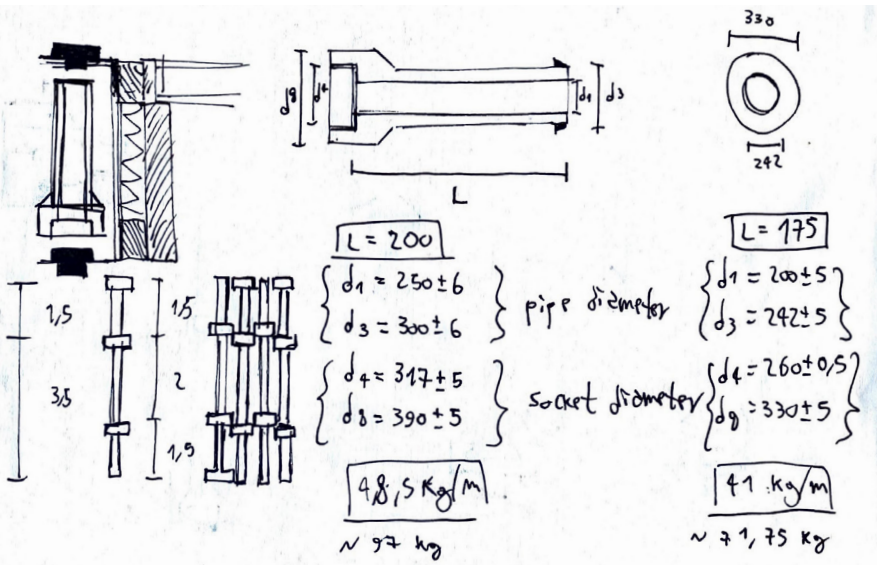 330
d8
d4
d1
d3
242
L
L = 200
d1 = 250±6
d3 = 300±6
pipe diameter
d4 = 317±5
d8 = 390±5
socket diameter
48,5 Kg/m
~ 97 kg
L = 175
d1 = 200±5
d3 = 242±5
d4 = 260±0,5
d8 = 330±5
41 kg/m
~ 71,75 kg
1,5
3,5
1,5
2
1,5